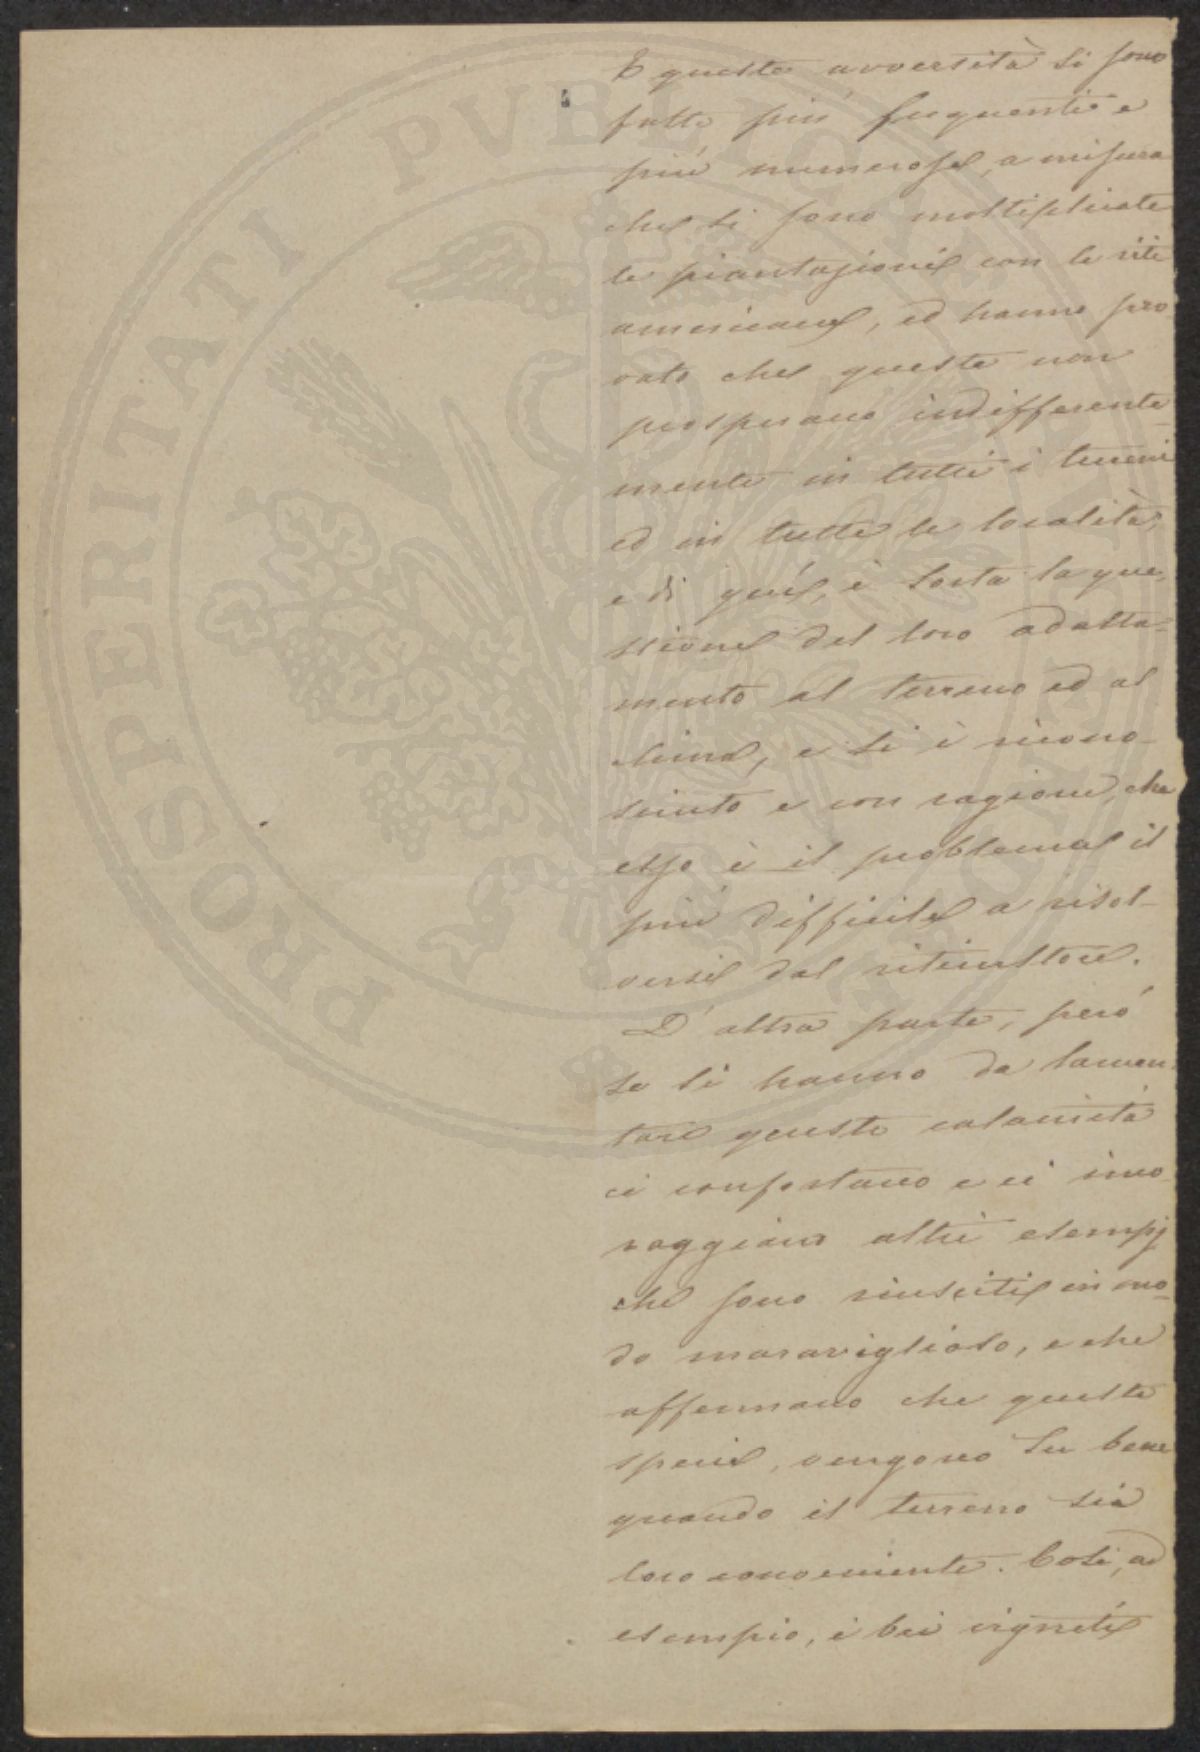 E queste avversità si sono
fatte più frequenti e
più numerose, a misura
che si sono moltiplicate
le piantagioni con le viti
americane, ed hanno pro
vato che queste non
prosperano indifferente-
mente in tutti i terreni
ed in tutte le località,
e di quì, è sorta la que
stione del loro adatta-
mento al terreno ed al
clima, e si è ricono-
sciuto e con ragione, che
esso è il problema il
più difficile a risol-
versi dal viticultore.
D'altra parte, però
se si hanno da lamen-
tare queste calamità
ci confortano e ci inco
raggiano altri esempj
che sono riusciti in mo-
do maraviglioso, e che
affermano che queste
specie, vengono su bene
quando il terreno sia
loro conveniente. Così, ad
esempio, i bei vigneti
PROSPERITATI PVBLICAE